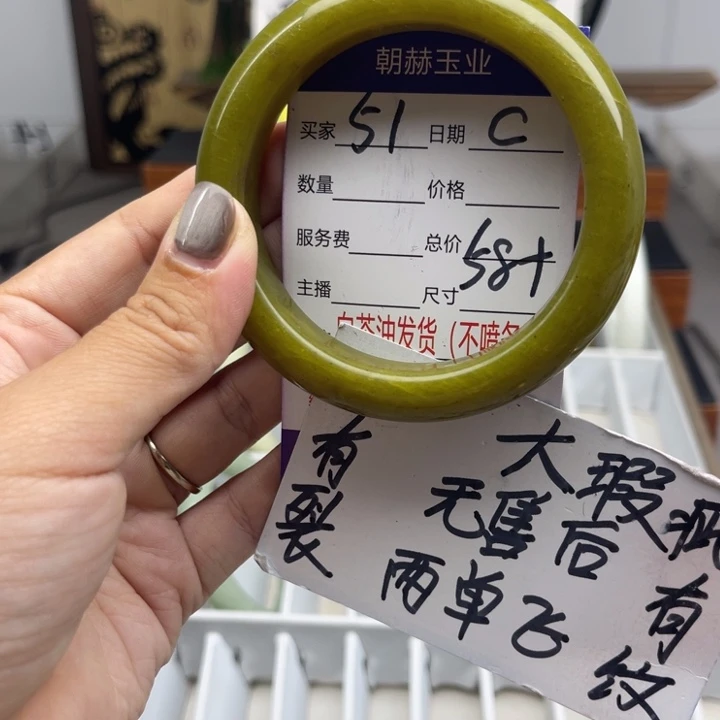 朝赫玉业
买家 51 日期 C
数量 价格
服务费 总价 58+
主播 尺寸
白茶油发货（不喷冬
有裂
大瑕疵
无售后 有纹
两单飞